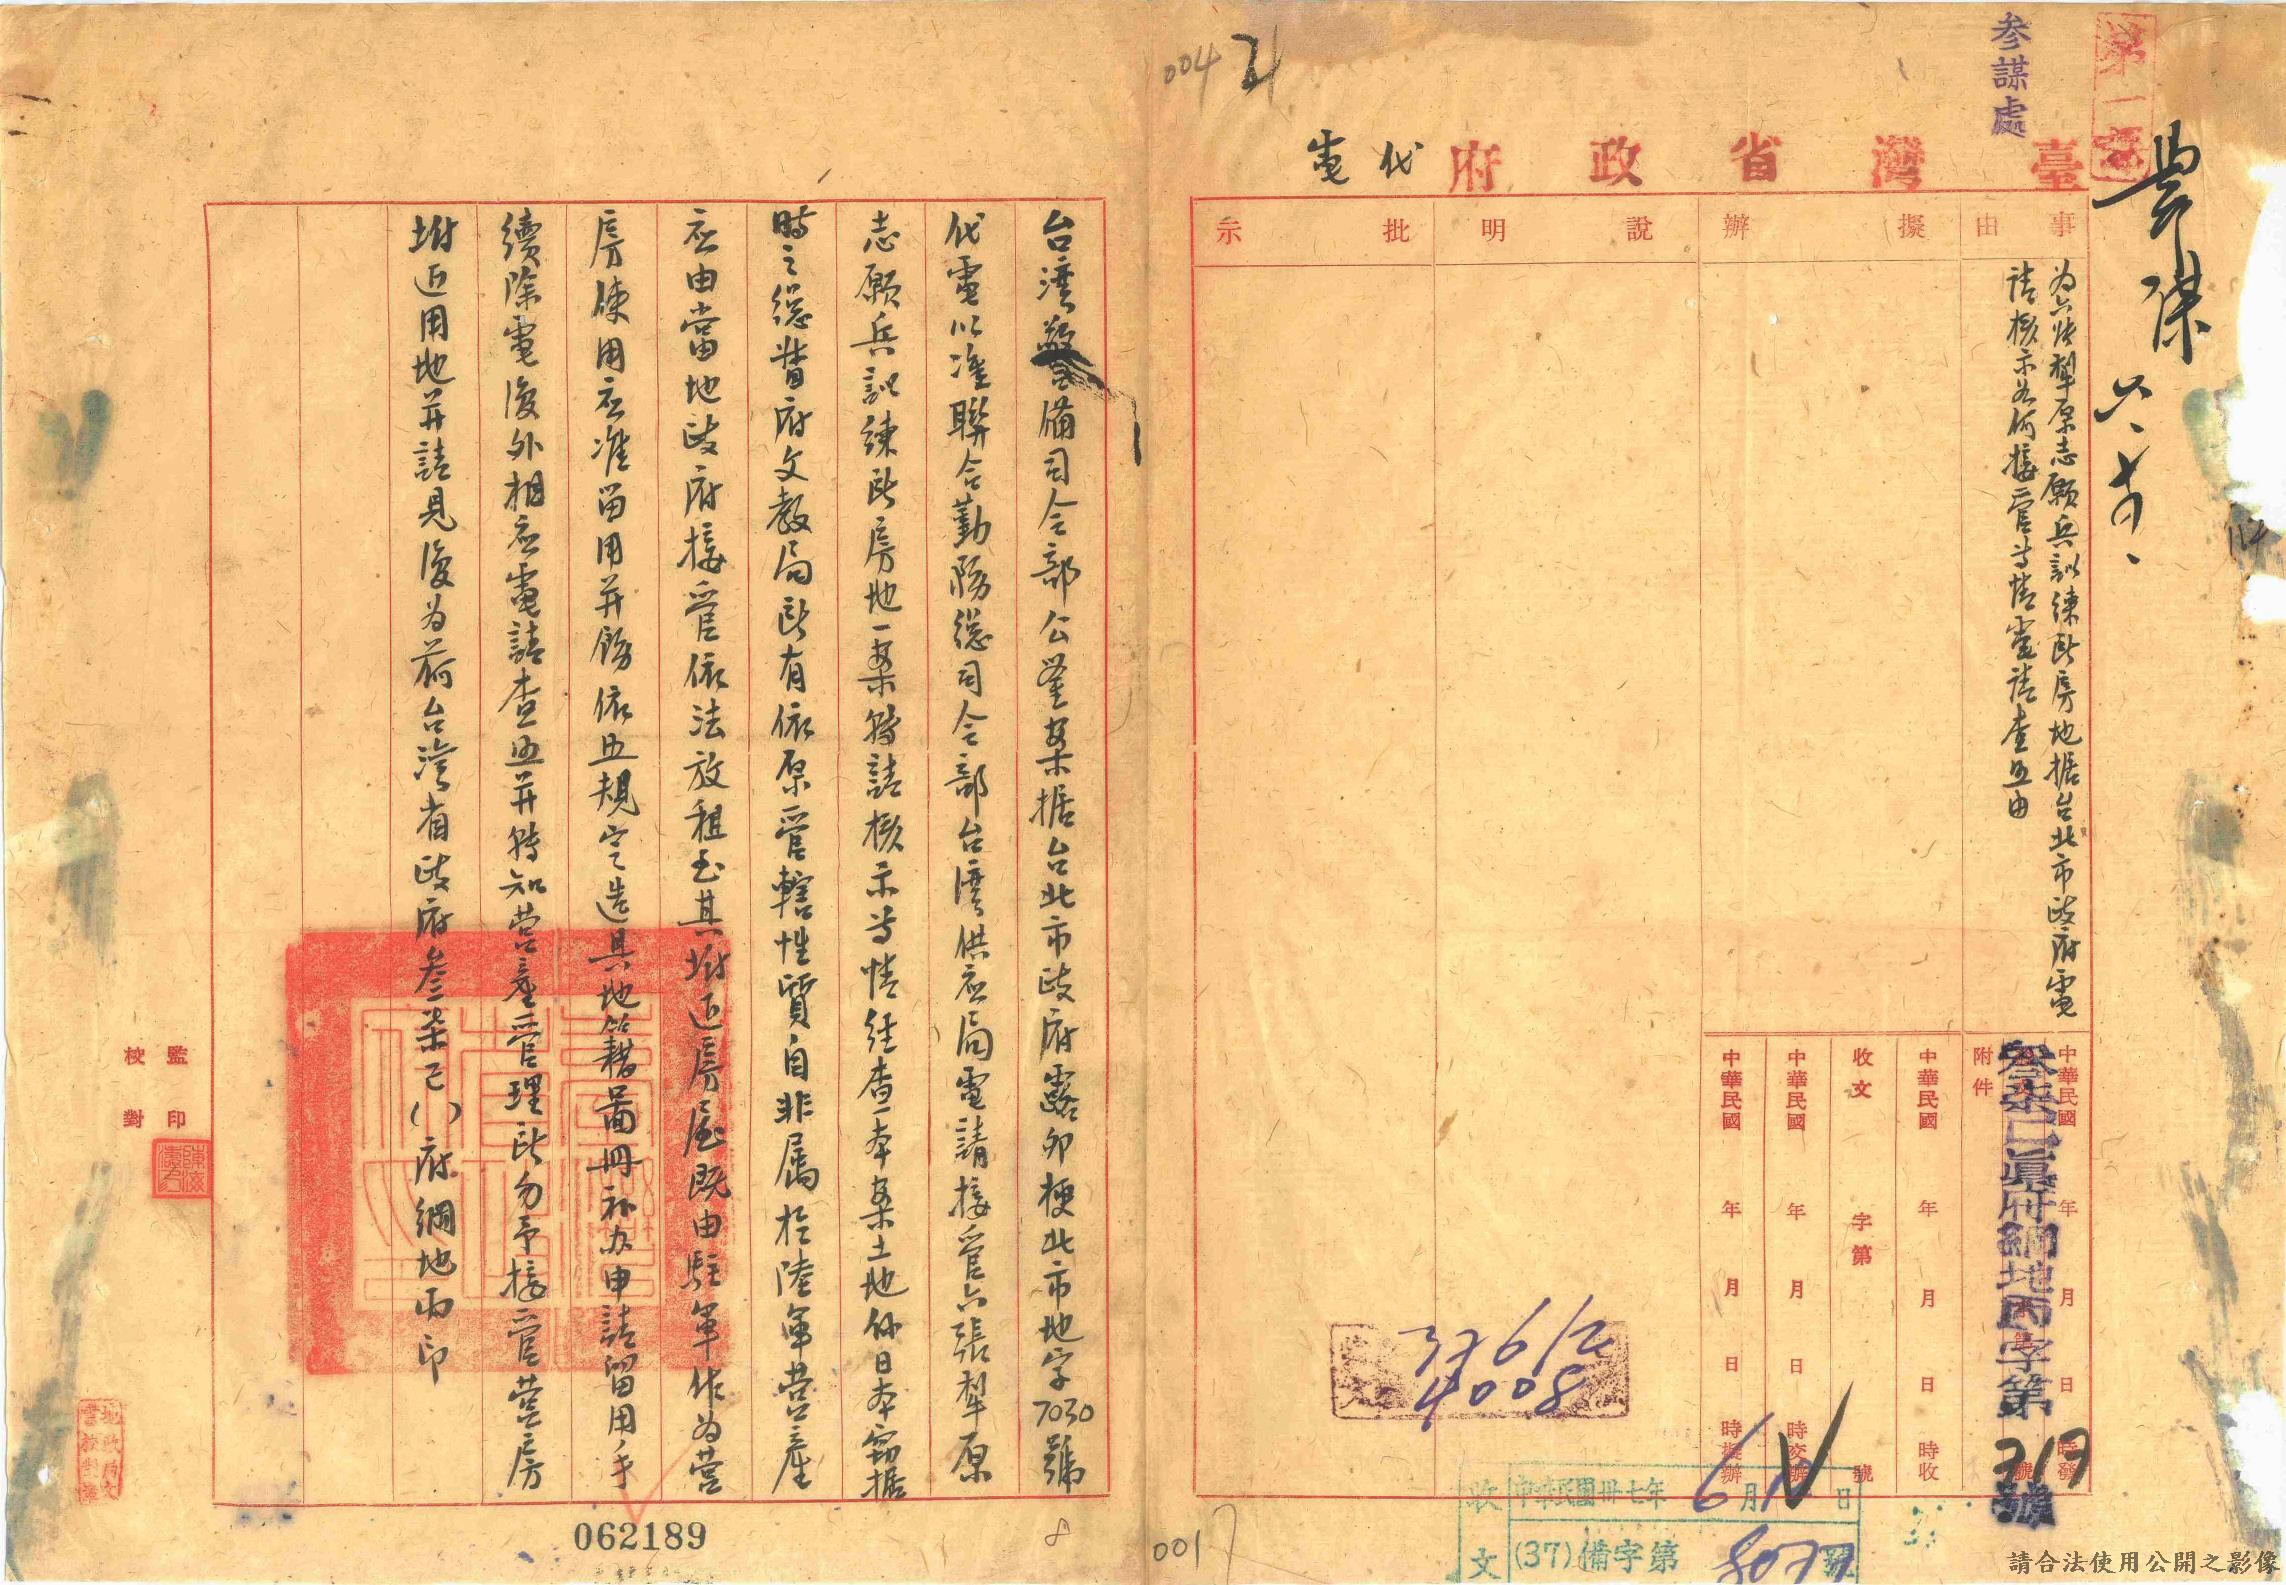 參謀處
臺灣省政府代电
事由
擬辦
說明
批示
为六张犁原志願兵訓練所房地据台北市政府電
請核示如何接管等情電請查照由
中華民國 年 月 日 時發
叁柒巳真府綱地丙字第319號
附件
中華民國 年 月 日 時收
收文 字第 號
中華民國 年 月 日 時交辦
中華民國 年 月 日 時擬辦
37 6/2
4008
收文
中華民國卅七年6月12日
(37)備字第 號
004
001
台湾警備司令部公鑒案据台北市政府露卯梗北市地字7030號
代電以准聯合勤務總司令部台湾供应局電請接管六張犁原
志願兵訓練所房地一案轉請核示等情經查本案土地係日本竊据
時之總督府文教局所有依原管轄性質自非属於陸軍营産
应由當地政府接管依法放租至其坿近房屋既由駐軍作为营
房使用应准留用并飭依照規定造具地籍圖冊补办申請留用手
續除電復外相应電請查照并轉知营産管理所勿予接管营房
坿近用地并請見復为荷台湾省政府叁柒巳( )府綱地丙印
監印
校對
062189
8
請合法使用公開之影像